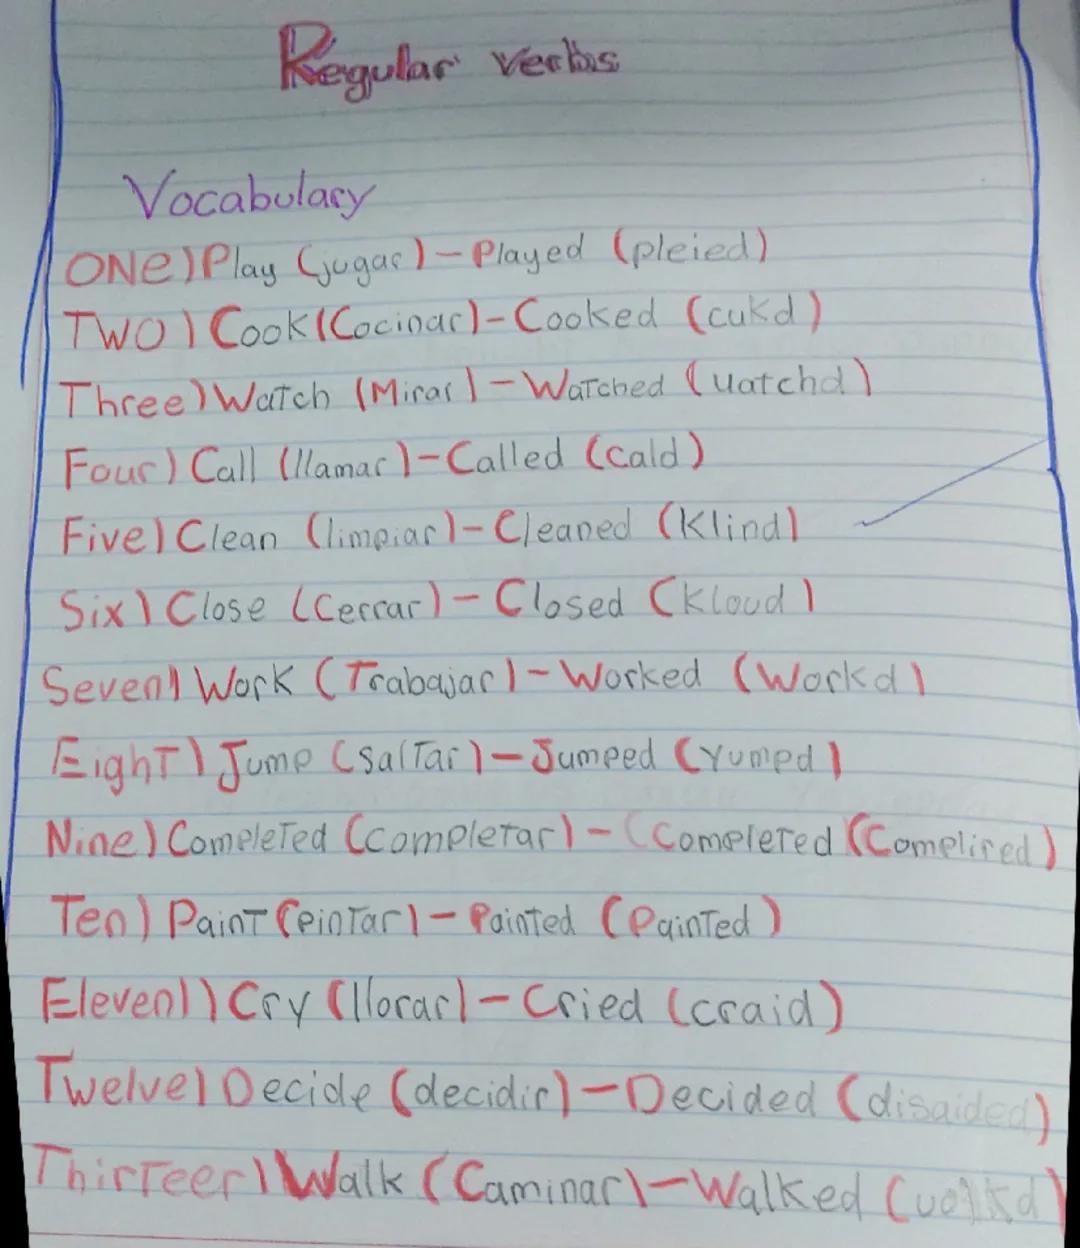 Regular verbs
Vocabulary
ONE) Play (jugar) - Played (pleied)
TWO) Cook (Cocinar) - Cooked (cukd)
Three) Watch (Mirar) - Watched (uatchd)
Four) Call (llamar) - Called (cald)
Five) Clean (limpiar) - Cleaned (Klind)
Six) Close (Cerrar) - Closed (Kloud)
Seven) Work (Trabajar) - Worked (Workd)
Eight) Jump (SalTar) - Jumped (Yumpd)
Nine) Completed (completar) - (Completed (Complired)
Ten) Paint (pintar) - Painted (Painted)
Eleven)) Cry (llorar) - Cried (craid)
Twelve) Decide (decidir) - Decided (disaided)
Thirteer) Walk (Caminar) - Walked